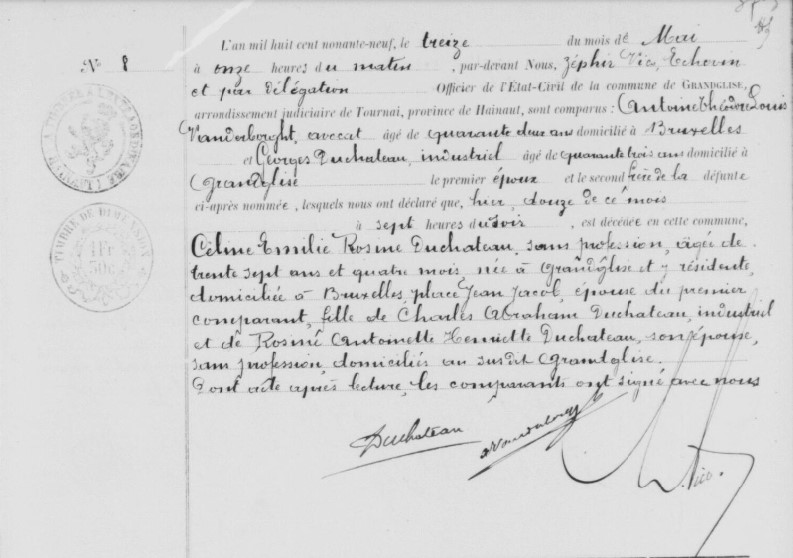 L'an mil huit cent nonante-neuf, le treize du mois de Mai
N° 8
à onze heures du matin, par-devant Nous, Zéphir Vico, Echevin
et par délégation Officier de l'État-Civil de la commune de GRANDGLISE,
arrondissement judiciaire de Tournai, province de Hainaut, sont comparus : Antoine Théodore Louis
Vanderborght, avocat âgé de quarante deux ans domicilié à Bruxelles
et Georges Duchateau, industriel âgé de quarante trois ans domicilié à
Grandglise le premier époux et le second frère de la défunte
ci-après nommée, lesquels nous ont déclaré que, hier, douze de ce mois
à sept heures du soir, est décédée en cette commune,
Céline Emilie Rosine Duchateau, sans profession, âgée de
trente sept ans et quatre mois, née à Grandglise et y résidente,
domiciliée à Bruxelles, place Jean Jacob, épouse du premier
comparant, fille de Charles Abraham Duchateau, industriel
et de Rosine Antoinette Henriette Duchateau, son épouse,
sans profession, domiciliés au susdit Grandglise.
Dont acte après lecture, les comparants ont signé avec nous
Duchateau
Vanderborght
Z. Vico.
TIMBRE DE DIMENSION
1 Fr
30c